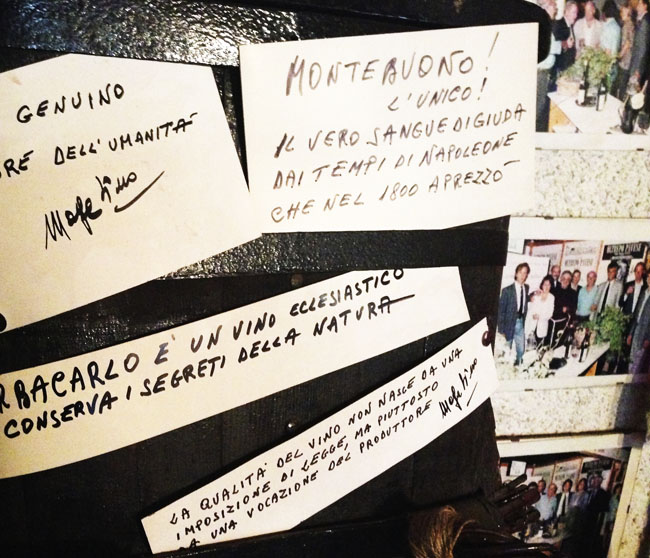 GENUINO
DELL'UMANITÀ
MONTEBUONO!
L'UNICO!
IL VERO SANGUE DI GIUDA
DAI TEMPI DI NAPOLEONE
CHE NEL 1800 APREZZÒ
RBACARLO E' UN VINO ECLESIASTICO
CONSERVA I SEGRETI DELLA NATURA
LA QUALITA' DEL VINO NON NASCE DA UNA
IMPOSIZIONE DI LEGGE, MA PIUTTOSTO
A UNA VOCAZIONE DEL PRODUTTORE